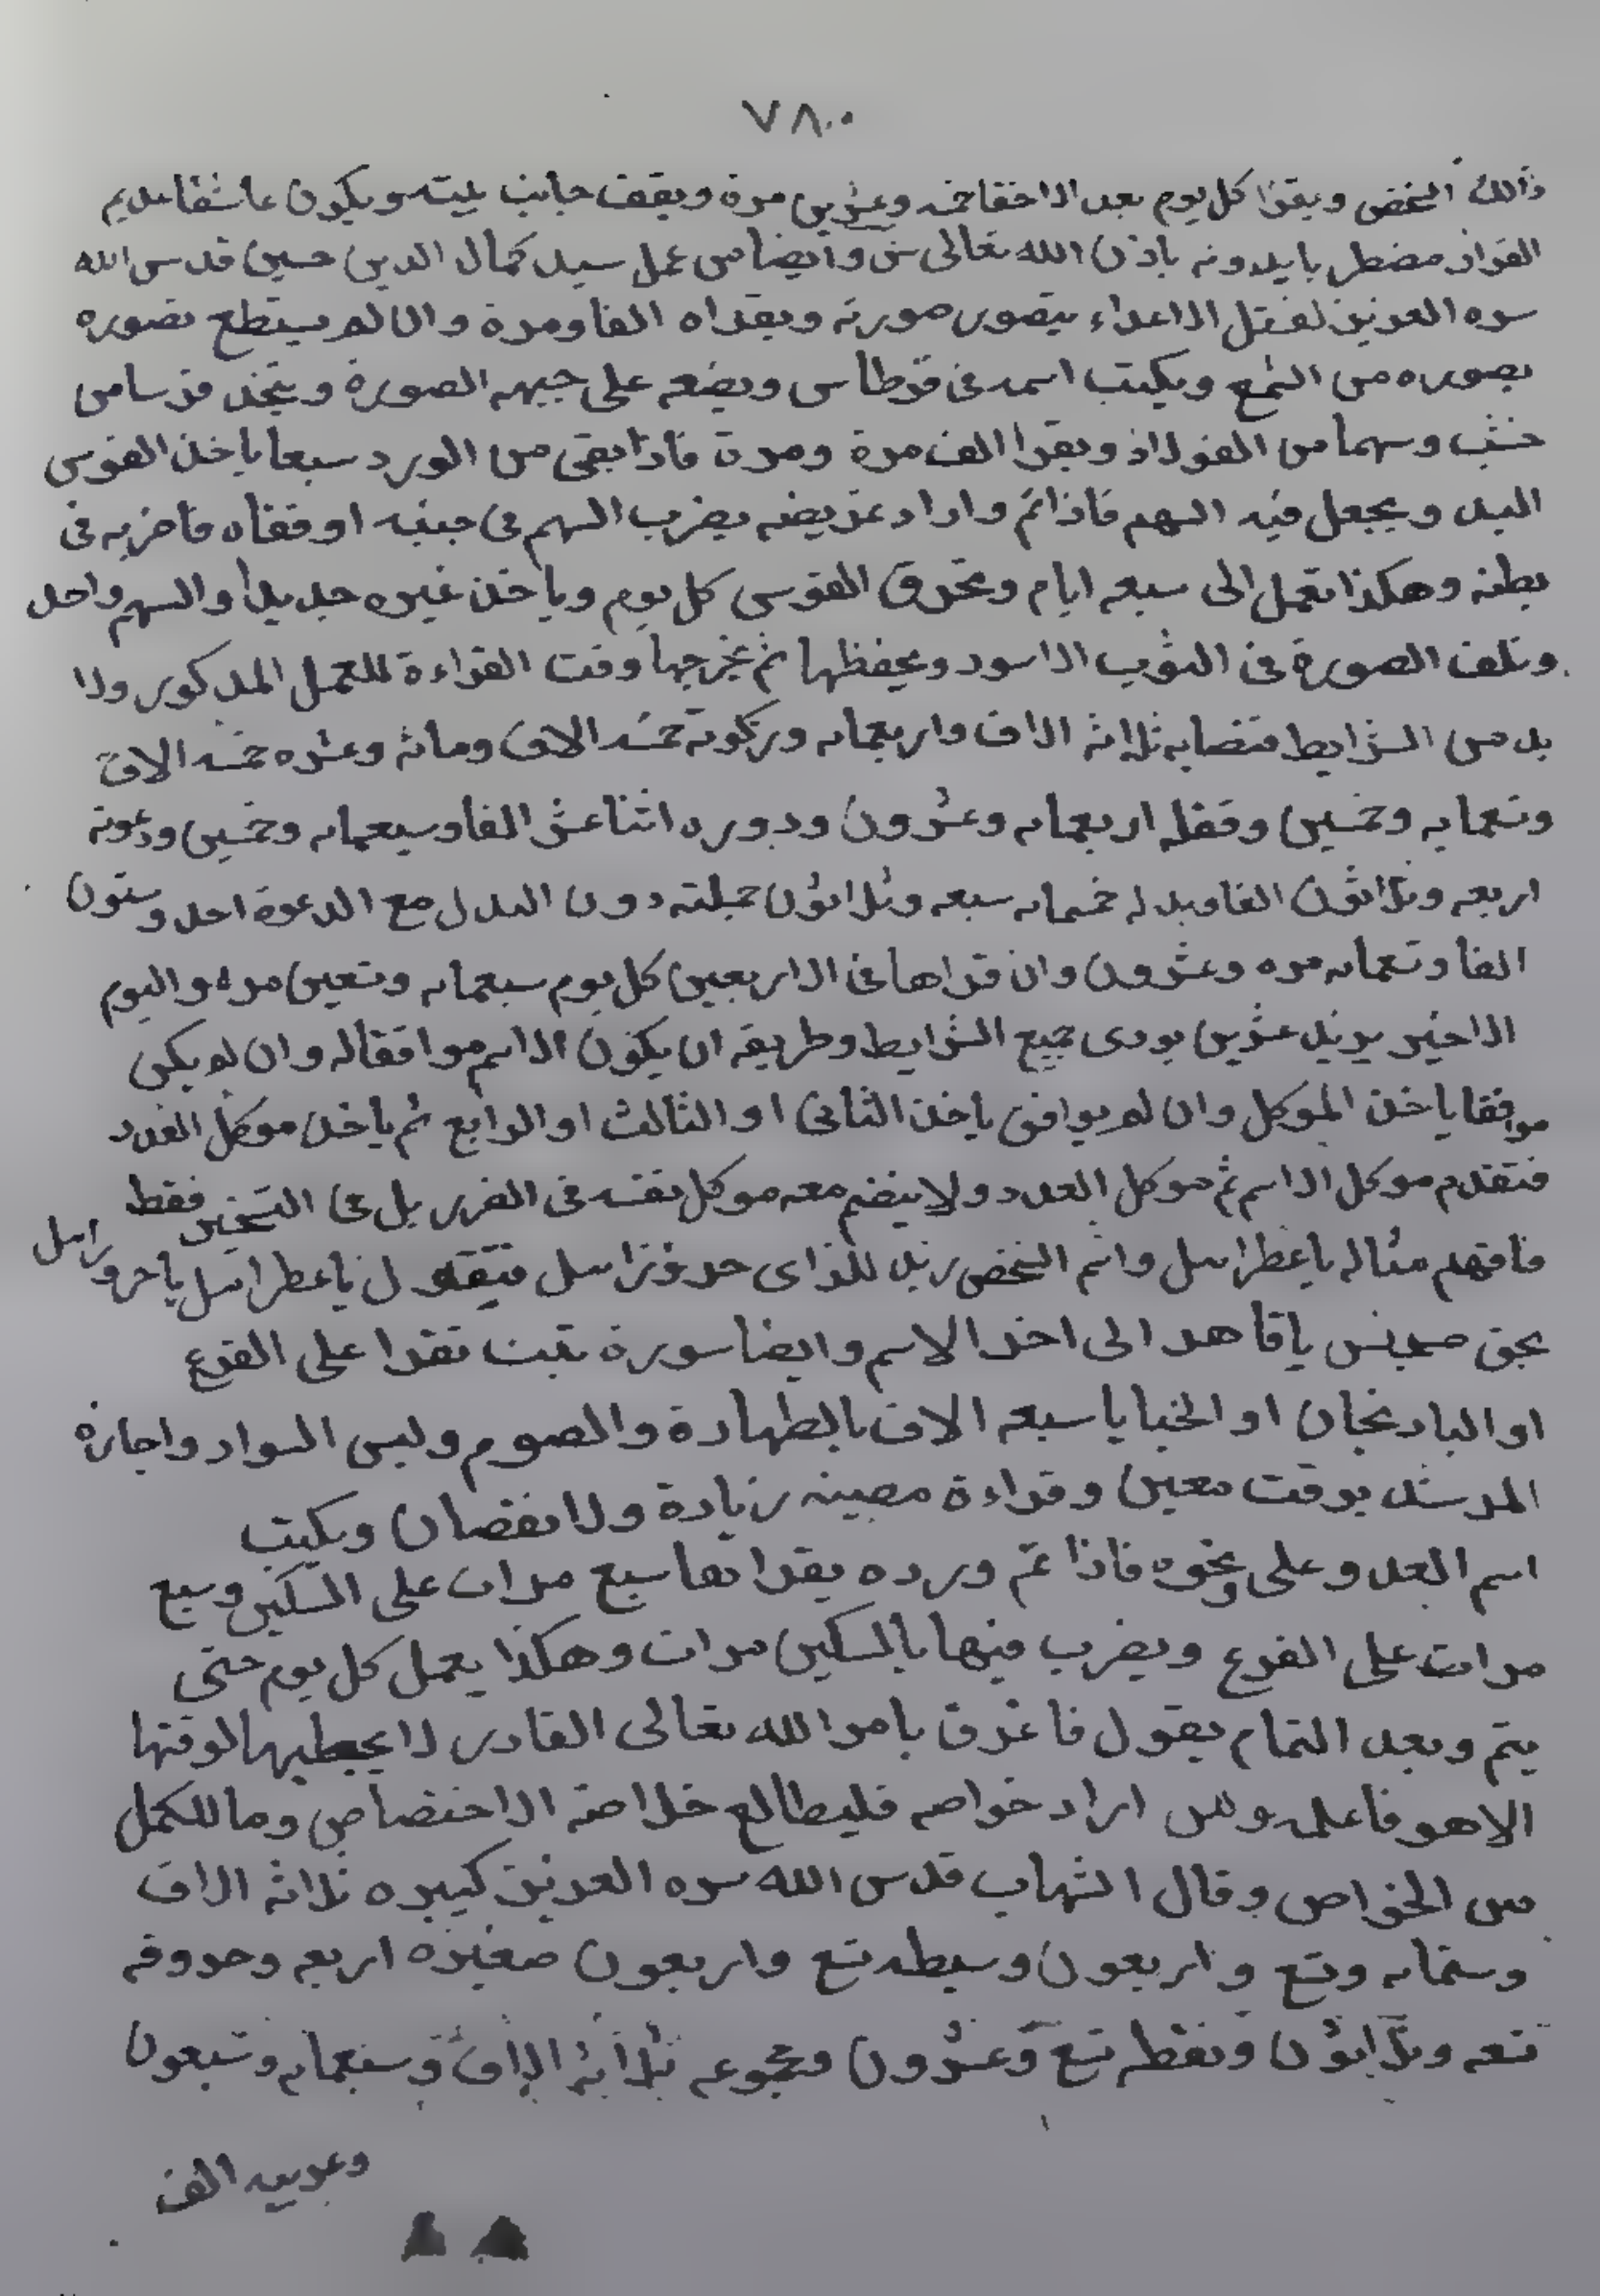 ٧٨٠٠
ذالك الشخص ويقرا كل يوم بعد الاخفا خمسه وعشرين مرة ويقف جانب بيته ويكون عاشقا عديم
القرار مضطر با يدونه باذن الله تعالى وايضا من عمل سيد كمال الدين حسين قدس الله
سره العزيز لقتل الاعداء يتصور صورته ويقراه الفا ومرة وان لم يستطع تصوره
يصوره من الشمع ويكتب اسمه في قرطاس ويضعه على جبهه الصورة ويتخذ قوسا من
خشب وسهما من الفولاذ ويقرا الف مرة ومرة فاذا بقى من الورد سبعا ياخذ القوس
اليد ويجعل فيه السهم فاذا تم واراد تمريضه يضرب السهم في جنبه او قفاه فاضربه في
بطنه وهكذا تعمل الى سبعه ايام وتحرق القوس كل يوم وياخذ غيره جديدا والسهم واحد
وتلف الصورة في الثوب الاسود ويحفظها ثم يخرجها وقت القراءة للعمل المذكور ولا
بد من الشرايط فنصابه ثلاثه الاف واربعمايه وزكوته خمسه الاف ومائة وعشره خمسه الاف
وتسعمايه وخمسين وقفله اربعمايه وعشرون ودوره اثنا عشر الفا وسبعمايه وخمسين ودعوته
اربعه وثلاثون الفا وبدله خمسمايه سبعه وثلاثون جملته دون البدل مع الدعوة احد وستون
الفا وتسعمايه مره وعشرون وان قراها في الاربعين كل يوم سبعمايه وتسعين مره واليوم
الاخير يزيد عشرين يودى جميع الشرايط وطريقه ان يكون الاسم موافقا له وان لم يكن
موافقا ياخذ الموكل وان لم يوافق ياخذ الثاني او الثالث او الرابع ثم ياخذ موكل العدد
فتقدم موكل الاسم ثم موكل العدد ولا يضم معه موكل نفسه في الضرر بل في التسخير فقط
فافهم مثاله يا عطراىىل واسم الشخص زيد للذاى حروزاىىل فيقول يا عطراىىل يا حروزاىىل
بحق يا قاهر الى اخر الاسم وايضا سورة تبت تقرا على القرع
او البادنجان او الخيايا سبعه الاف بالطهارة والصوم ولبس السواد واجازه
المرشد بوقت معين وقراءة معينه زيادة ولا نقصان ويكتب
اسم العدو على ونحوه فاذا تم ورده يقراها سبع مرات على السكين وسبع
مرات على القرع ويضرب فيها بالسكين مرات وهكذا يعمل كل يوم حتى
يتم وبعد التمام يقول فاغرق بامر الله تعالى القادر لا يجليها لوقتها
الا هو فاعلمه ومن اراد خواصه فليطالع خلاصة الاختصاص وما للكمل
من الخواص وقال الشهاب قدس الله سره العزيز كبيره ثلاثه الاف
وستمايه وتسع واربعون وسيطه تسع واربعون صغيره اربعه وحروفه
تسعه وثلاثون ونقطه تسع وعشرون ومجموعه ثلاثة الاف وسبعمايه وتسعون
الف